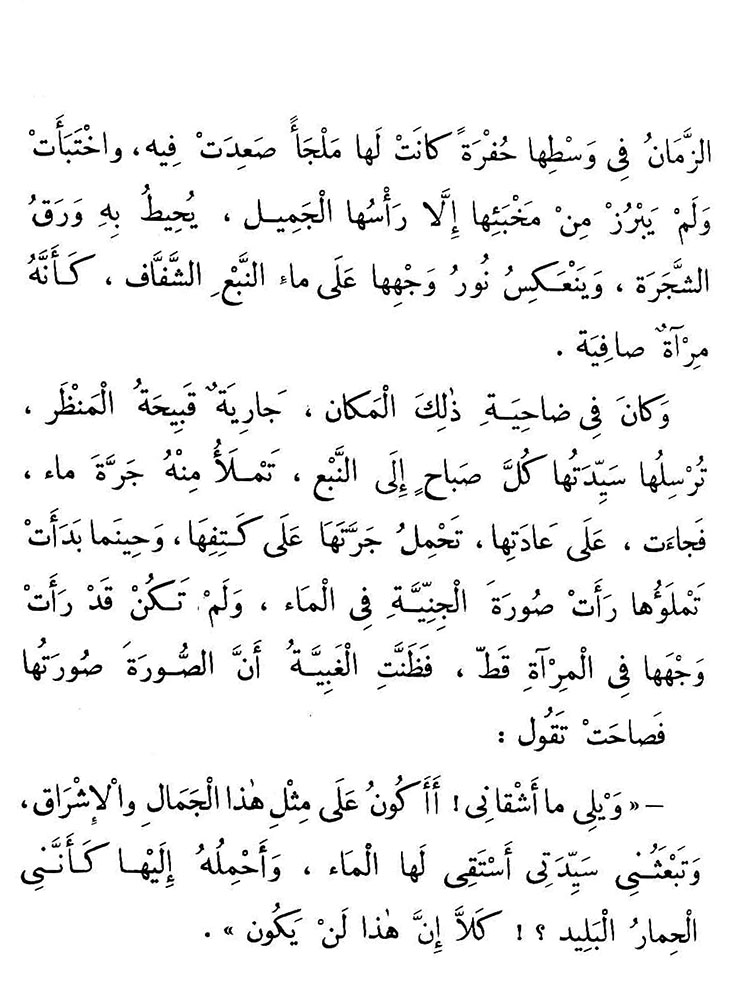 الزَّمَانُ فِى وَسْطِها حُفْرَةً كانَتْ لَها مَلْجَأً صَعِدَتْ فِيه، واخْتَبَأَتْ
وَلَمْ يَبْرُزْ مِنْ مَخْبَئِها إِلَّا رَأْسُها الْجَمِيل ، يُحِيطُ بِهِ وَرَقُ
الشَّجَرَة ، وَيَنْعَكِسُ نُورُ وَجْهِها عَلَى ماءِ النَّبْعِ الشَّفَّاف ، كَأَنَّهُ
مِرْآةٌ صافِيَة .
وَكانَ فِى ضاحِيَةِ ذٰلِكَ الْمَكان ، جارِيَةٌ قَبِيحَةُ الْمَنْظَر ،
تُرْسِلُها سَيِّدَتُها كُلَّ صَباحٍ إِلَى النَّبْع ، تَمْلَأُ مِنْهُ جَرَّةَ ماء ،
فَجاءَت ، عَلَى عَادَتِها، تَحْمِلُ جَرَّتَهَا عَلَى كَتِفِهَا، وَحِينَما بَدَأَتْ
تَمْلَؤُها رَأَتْ صُورَةَ الْجِنِّيَّةِ فِى الْمَاء ، وَلَمْ تَكُنْ قَدْ رَأَتْ
وَجْهَها فِى الْمِرْآةِ قَطّ ، فَظَنَّتِ الْغَبِيَّةُ أَنَّ الصُّورَةَ صُورَتُها
فَصاحَتْ تَقُول :
– « وَيْلِى ما أَشْقانِى ! أَأَ كُونُ عَلَى مِثْلِ هٰذا الْجَمَالِ والْإِشْرَاق،
وَتَبْعَثُنِى سَيِّدَتِى أَسْتَقِى لَها الْمَاء ، وَأَحْمِلُهُ إِلَيْها كَأَنَّنِى
الْحِمارُ الْبَلِيد ؟ ! كَلاَّ إِنَّ هٰذا لَنْ يَكُون » .